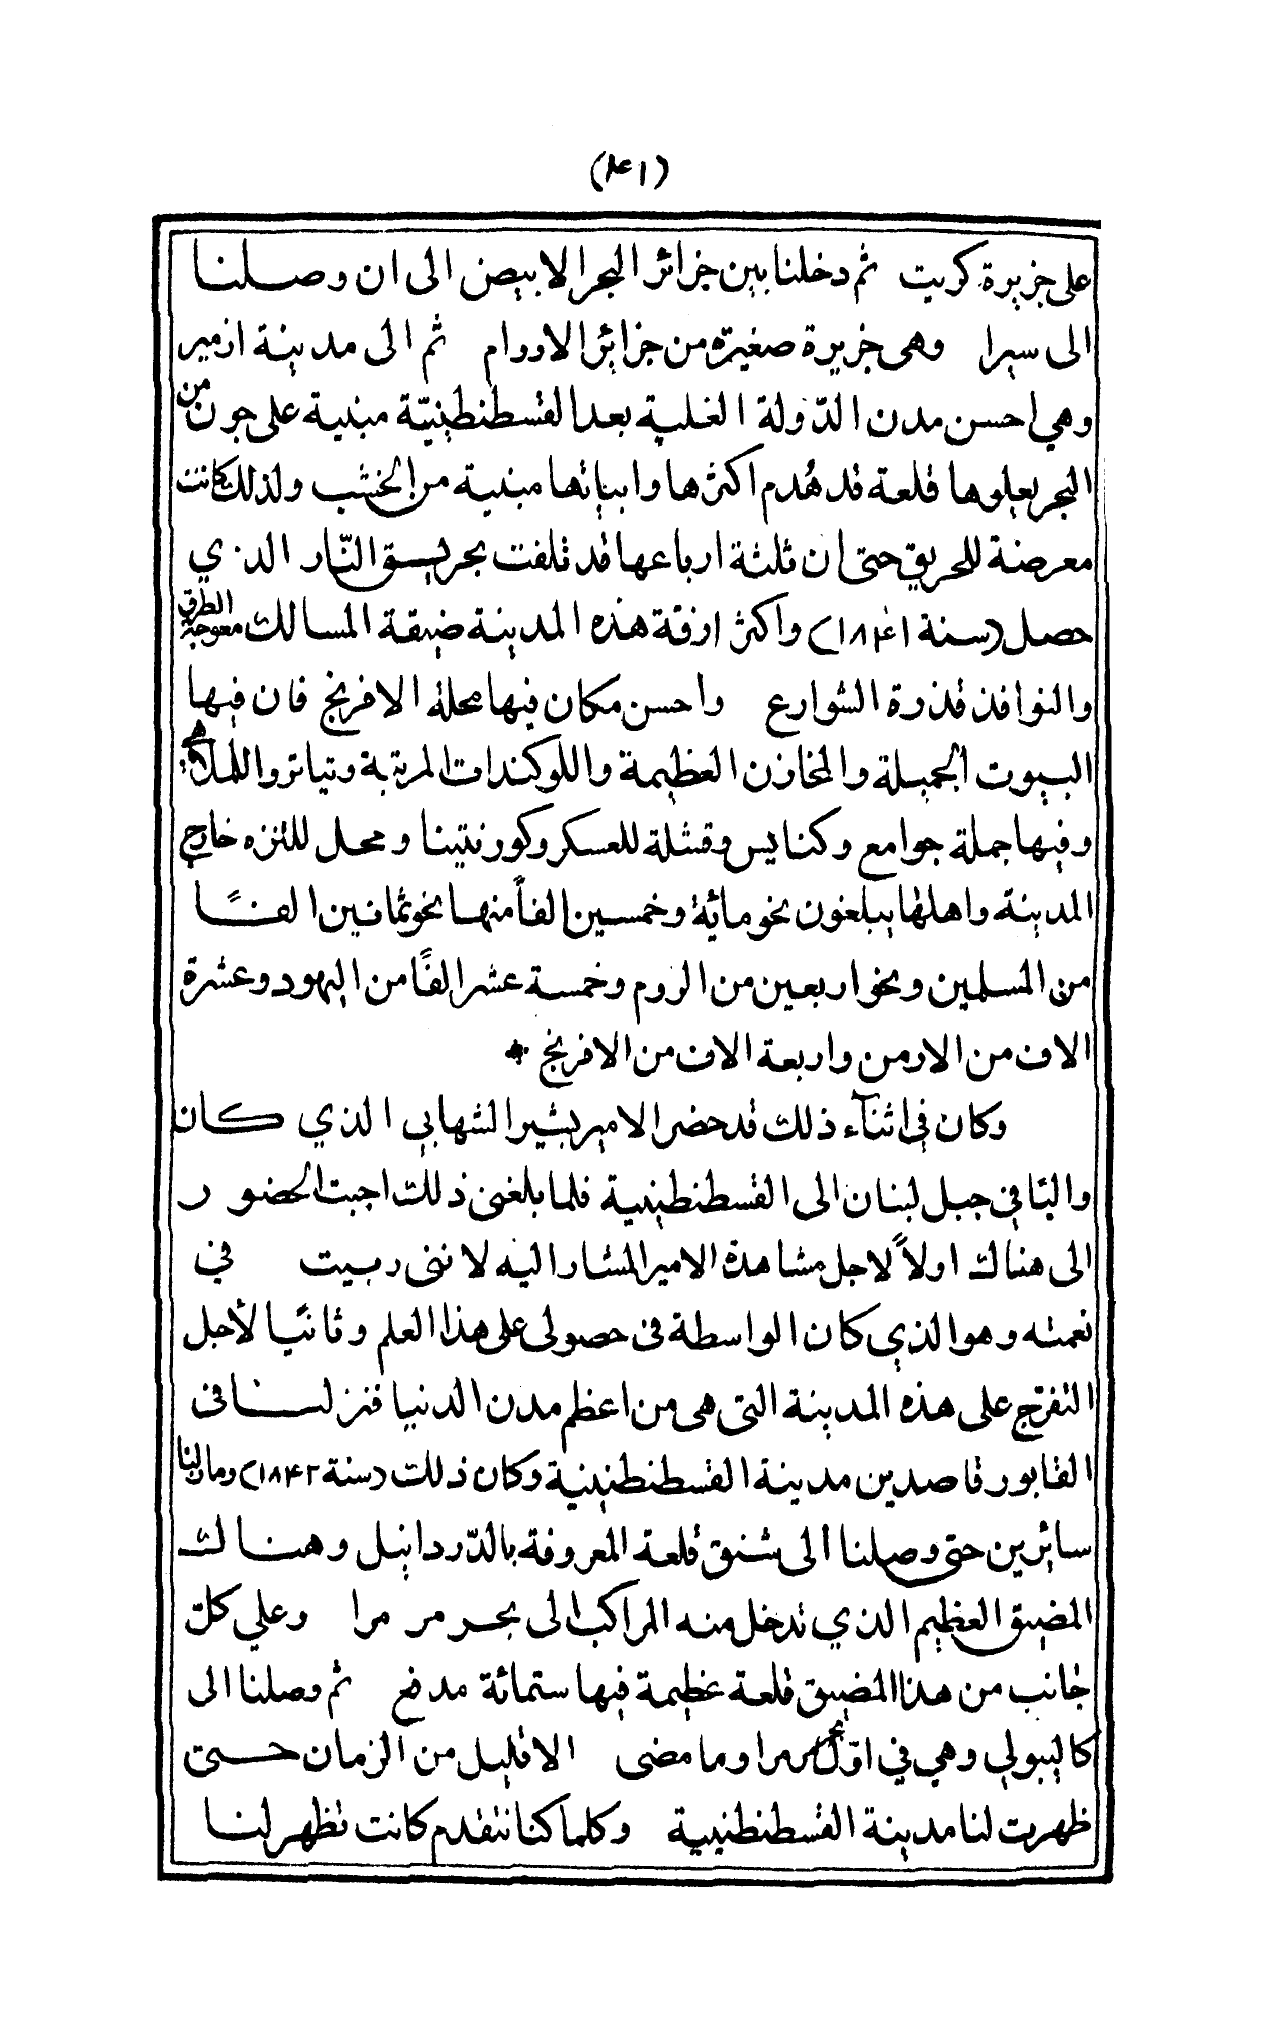 (١٤)
على جزيرة كريت ثم دخلنا بين جزائر البحر الابيض الى ان وصلنا
الى سيرا وهى جزيرة صغيرة من جزائر الاروام ثم الى مدينة ازمير
وهي احسن مدن الدّولة العلية بعد القسطنطينيّة مبنية على جون من
البحر يعلوها قلعة قد هُدم اكثرها وابياتها مبنية من الخشب ولذلك كانت
معرضة للحريق حتى ان ثلثة ارباعها قد تلفت بحريق النّار الذي
حصل (سنة ١٨٤١) واكثر ازقة هذه المدينة ضيقة المسالك معوجة الطرق
والنوافذ قذرة الشوارع واحسن مكان فيها محلة الافرنج فان فيها
البيوت الجميلة والمخازن العظيمة واللوكندات المرتبة وتياترو الملاهي
وفيها جملة جوامع وكنايس وقشلة للعسكر وكورنتينا ومحل للتنزه خارج
المدينة واهلها يبلغون نحو مائة وخمسين الفاً منها نحو ثمانين الفًا
من المسلمين ونحو اربعين من الروم وخمسة عشر الفًا من اليهود وعشرة
الاف من الارمن واربعة الاف من الافرنج *
وكان في اثنآء ذلك قد حضر الامير بشير الشهابي الذي كان
واليًا في جبل لبنان الى القسطنطينية فلما بلغنى ذلك اجبت الحضور
الى هناك اولاً لاجل مشاهدة الامير المشار اليه لاننى ربيت في
نعمته وهو الذي كان الواسطة فى حصولى على هذا العلم وثانيًا لأجل
التفرّج على هذه المدينة التى هى من اعظم مدن الدنيا فنزلنا فى
القابور قاصدين مدينة القسطنطينية وكان ذلك (سنة ١٨٤٢) وما زلنا
سائرين حتى وصلنا الى شنق قلعة المعروفة بالدّردانيل وهناك
المضيق العظيم الذي تدخل منه المراكب الى بحر مرمرا وعلي كلّ
جانب من هذا المضيق قلعة عظيمة فيها ستمائة مدفع ثم وصلنا الى
كاليبولي وهي في اوّل بحر مرمرا وما مضى الا قليل من الزمان حتى
ظهرت لنا مدينة القسطنطينية وكلما كنا نتقدم كانت تظهر لنا